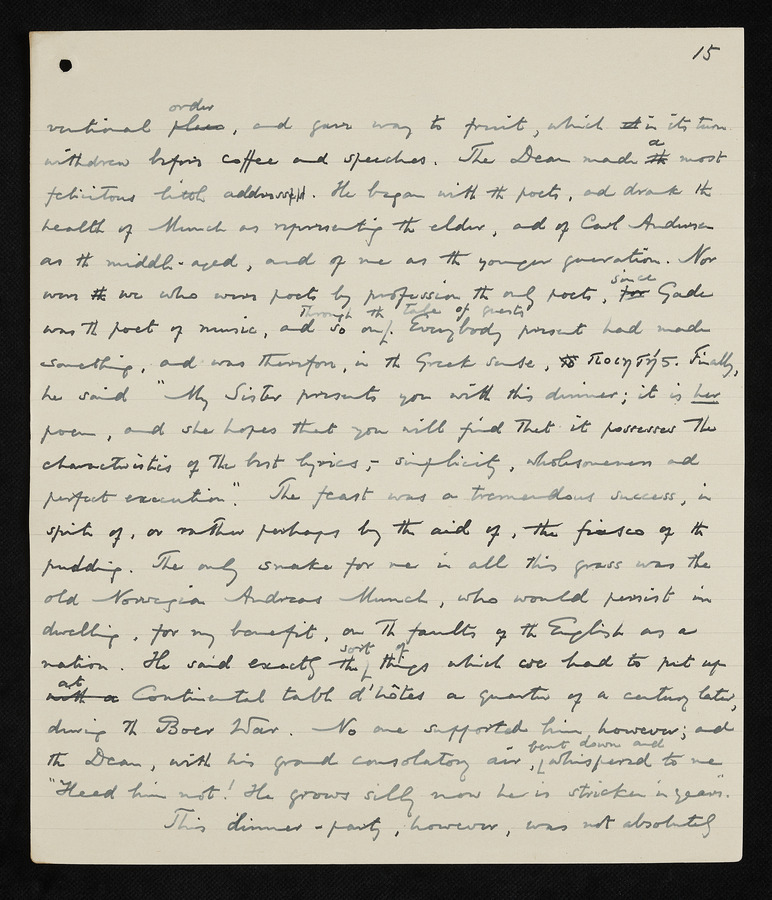 15
order
ventional place, and gave way to fruit, which it in its turn
withdrew before coffee and speeches. The Dean made the a most
felicitous little addresses. He began with the poets, and drank the
health of Munch as representing the elder, and of Carl Andersen
as the middle-aged, and of me as the younger generation. Nor
were the we who were poets by profession the only poets, for since Gade
through the tale of guests
was the poet of music, and so on. Everybody present had made
something, and was therefore, in the Greek sense, to ποιητής. Finally,
he said "My Sister presents you with this dinner; it is her
poem, and she hopes that you will find that it possesses the
characteristics of the best lyrics,- simplicity, wholesomeness and
perfect execution". The feast was a tremendous success, in
spite of, or rather perhaps by the aid of, the fiasco of the
pudding. The only snake for me in all this grass was the
old Norwegian Andreas Munch, who would persist in
dwelling, for my benefit, on the faults of the English as a
sort of
nation. He said exactly the things which we had to put up
at
with a Continental table d'hôtes a quarter of a century later,
during the Boer War. No one supported him, however; and
bent down and
the Dean, with his grand consolatory air, whispered to me
"Heed him not! He grows silly now he is stricken in years".
This dinner-party, however, was not absolutely